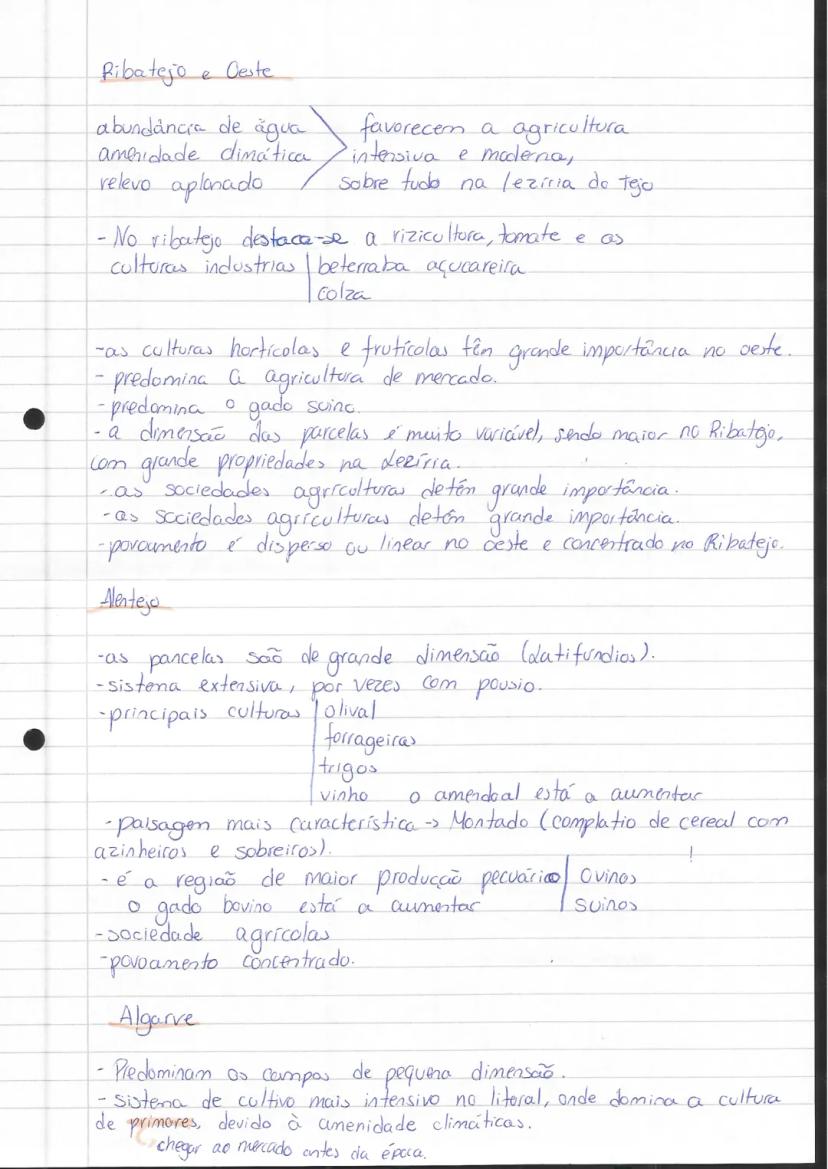 Ribatejo e Oeste
abundância de água favorecem a agricultura
amenidade climática intensiva e moderna,
relevo aplanado sobre tudo na lezíria do Tejo
- No ribatejo destaca-se a rizicultora, tomate e as
culturas industrias | beterraba açucareira
colza
-as culturas hortícolas e frutícolas têm grande importância no oeste.
- predomina a agricultura de mercado.
-predomina o gado suino.
- a dimensão das parcelas é muito variável, sendo maior no Ribatejo,
com grande propriedades na Lezíria.
- as sociedades agrículturas detém grande importância.
-as sociedades agrículturas detém grande importância.
-povoamento é disperso ou linear no oeste e concentrado no Ribatejo.
Alentejo
-as parcelas são de grande dimensão (Latifundios).
-sistema extensiva, por vezes com pousio.
-principais culturas | olival
forrageiras
trigos
vinho o amendoal está a aumentar
- paisagem mais característica -> Montado (complatio de cereal com
azinheiros e sobreiros). !
- é a região de maior produção pecuário | Ovinos
o gado bovino está a aumentar | suinos
-sociedade agrícolas
-povoamento concentrado.
Algarve
- Predominam os campos de pequena dimensão.
- sistema de cultivo mais intensivo no litoral, onde domina a cultura
de primores, devido à amenidade climáticas.
chegar ao mercado antes da época.